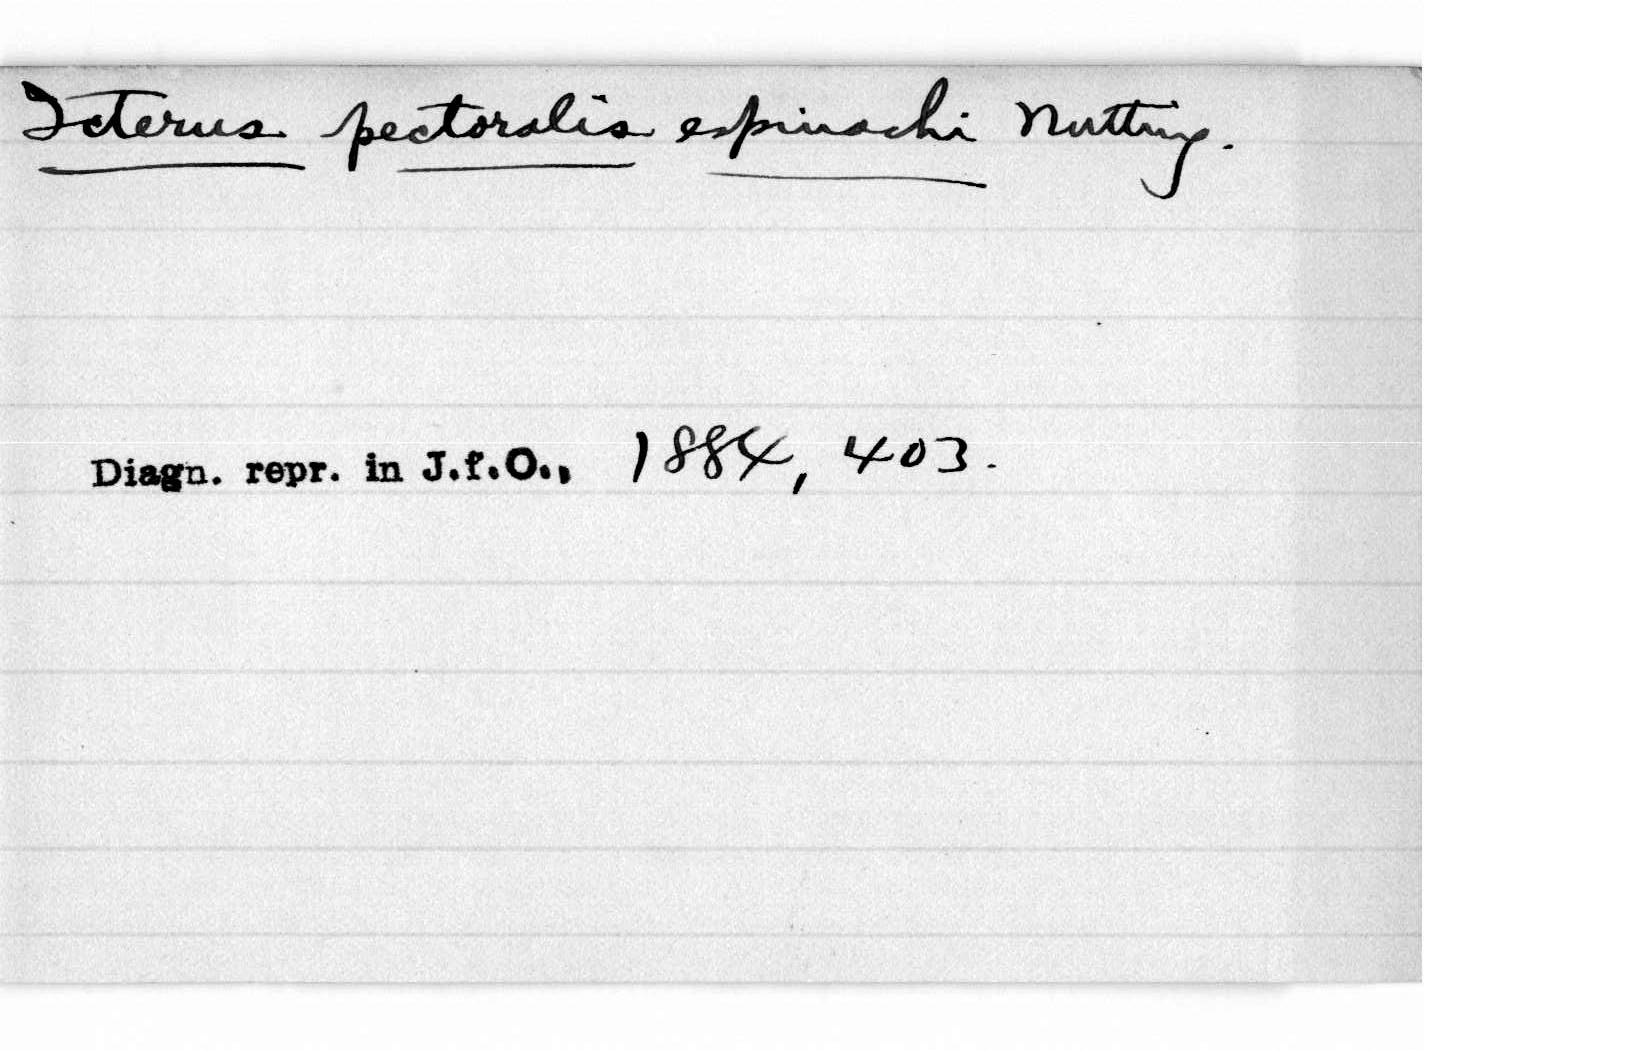 Icterus pectoralis espinachi Nutting.
Diagn. repr. in J.f.O., 1884, 403.